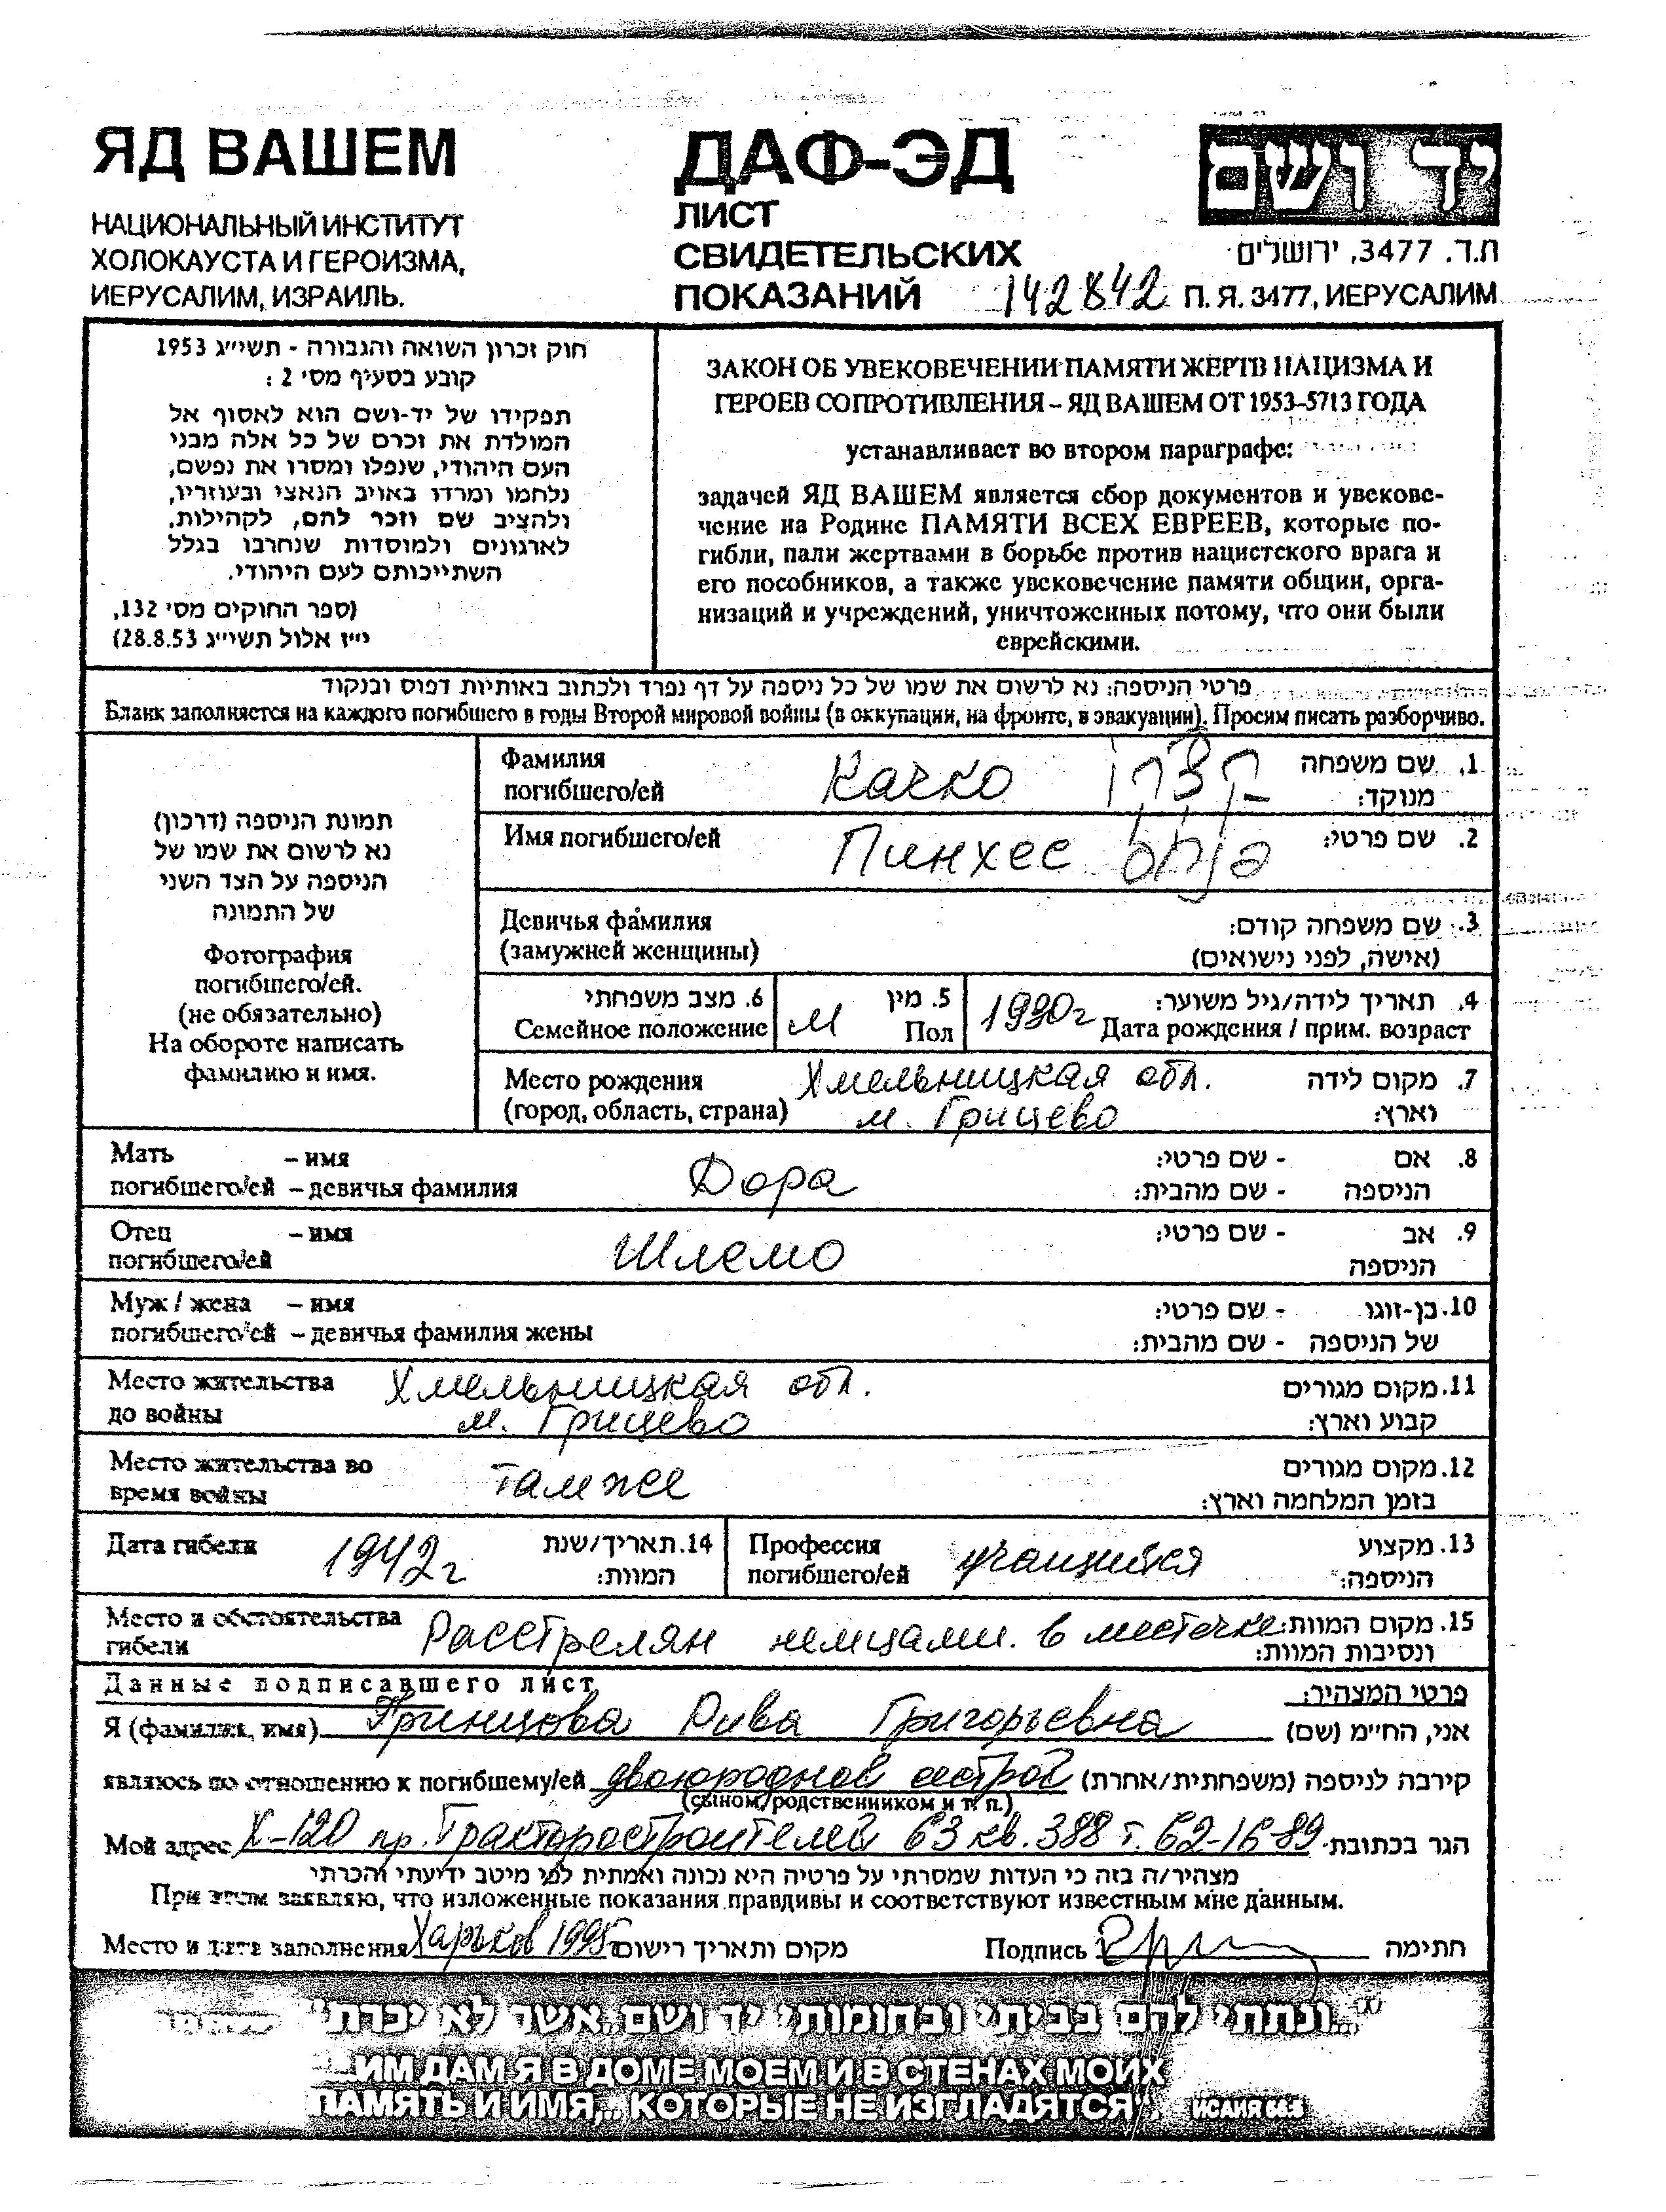 ЯД ВАШЕМ
НАЦИОНАЛЬНЫЙ ИНСТИТУТ
ХОЛОКАУСТА И ГЕРОИЗМА,
ИЕРУСАЛИМ, ИЗРАИЛЬ.
ДАФ-ЭД
ЛИСТ
СВИДЕТЕЛЬСКИХ
ПОКАЗАНИЙ 142842
יד ושם
ת.ד. 3477, ירושלים
П. Я. 3477, ИЕРУСАЛИМ
חוק זכרון השואה והגבורה - תשי״ג 1953
קובע בסעיף מס׳ 2 :
תפקידו של יד-ושם הוא לאסוף אל
המולדת את זכרם של כל אלה מבני
העם היהודי, שנפלו ומסרו את נפשם,
נלחמו ומרדו באויב הנאצי ובעוזריו,
ולהציב שם וזכר להם, לקהילות,
לארגונים ולמוסדות שנחרבו בגלל
השתייכותם לעם היהודי.
(ספר החוקים מס׳ 132,
י״ז אלול תשי״ג 28.8.53)
ЗАКОН ОБ УВЕКОВЕЧЕНИИ ПАМЯТИ ЖЕРТВ НАЦИЗМА И
ГЕРОЕВ СОПРОТИВЛЕНИЯ – ЯД ВАШЕМ ОТ 1953–5713 ГОДА
устанавливает во втором параграфе:
задачей ЯД ВАШЕМ является сбор документов и увекове-
чение на Родине ПАМЯТИ ВСЕХ ЕВРЕЕВ, которые по-
гибли, пали жертвами в борьбе против нацистского врага и
его пособников, а также увековечение памяти общин, орга-
низаций и учреждений, уничтоженных потому, что они были
еврейскими.
פרטי הניספה: נא לרשום את שמו של כל ניספה על דף נפרד ולכתוב באותיות דפוס ובנקוד
Бланк заполняется на каждого погибшего в годы Второй мировой войны (в оккупации, на фронте, в эвакуации). Просим писать разборчиво.
תמונת הניספה (דרכון)
נא לרשום את שמו של
הניספה על הצד השני
של התמונה
Фотография
погибшего/ей.
(не обязательно)
На обороте написать
фамилию и имя.
Фамилия 1. שם משפחה
погибшего/ей Качко מנוקד:
Имя погибшего/ей Пинхес פנחס 2. שם פרטי:
Девичья фамилия 3. שם משפחה קודם:
(замужней женщины) (אישה, לפני נישואים)
6. מצב משפחתי 5. מין 4. תאריך לידה/גיל משוער:
Семейное положение М Пол 1930г Дата рождения / прим. возраст
Место рождения Хмельницкая обл. 7. מקום לידה
(город, область, страна) м. Грицево וארץ:
Мать – имя Дора 8. אם - שם פרטי:
погибшего/ей – девичья фамилия הניספה - שם מהבית:
Отец – имя Шлемо 9. אב - שם פרטי:
погибшего/ей הניספה
Муж / жена – имя 10. בן-זוגו - שם פרטי:
погибшего/ей – девичья фамилия жены של הניספה - שם מהבית:
Место жительства Хмельницкая обл. 11. מקום מגורים
до войны м. Грицево קבוע וארץ:
Место жительства во там же 12. מקום מגורים
время войны בזמן המלחמה וארץ:
Дата гибели 1942г 14. תאריך/שנת Профессия учащийся 13. מקצוע
המוות: погибшего/ей הניספה:
Место и обстоятельства Расстрелян немцами. в местечке 15. מקום המוות:
гибели ונסיבות המוות:
Данные подписавшего лист פרטי המצהיר:
Я (фамилия, имя) Гринцова Рива Григорьевна אני, החיימ (שם)
являюсь по отношению к погибшему/ей двоюродной сестрой קירבה לניספה (משפחתית/אחרת)
(сыном, родственником и т. п.)
Мой адрес Х-120 пр. Тракторостроителей 63 кв. 388 т. 62-16-89 הגר בכתובת
מצהיר/ה בזה כי העדות שמסרתי על פרטיה היא נכונה ואמתית לפי מיטב ידיעתי והכרתי
При этом заявляю, что изложенные показания правдивы и соответствуют известным мне данным.
Место и дата заполнения Харьков 1995г מקום ותאריך רישום Подпись חתימה
"...ונתתי להם בביתי ובחומותי יד ושם אשר לא יכרת"
...ИМ ДАМ Я В ДОМЕ МОЕМ И В СТЕНАХ МОИХ
ПАМЯТЬ И ИМЯ,.. КОТОРЫЕ НЕ ИЗГЛАДЯТСЯ". ИСАИЯ